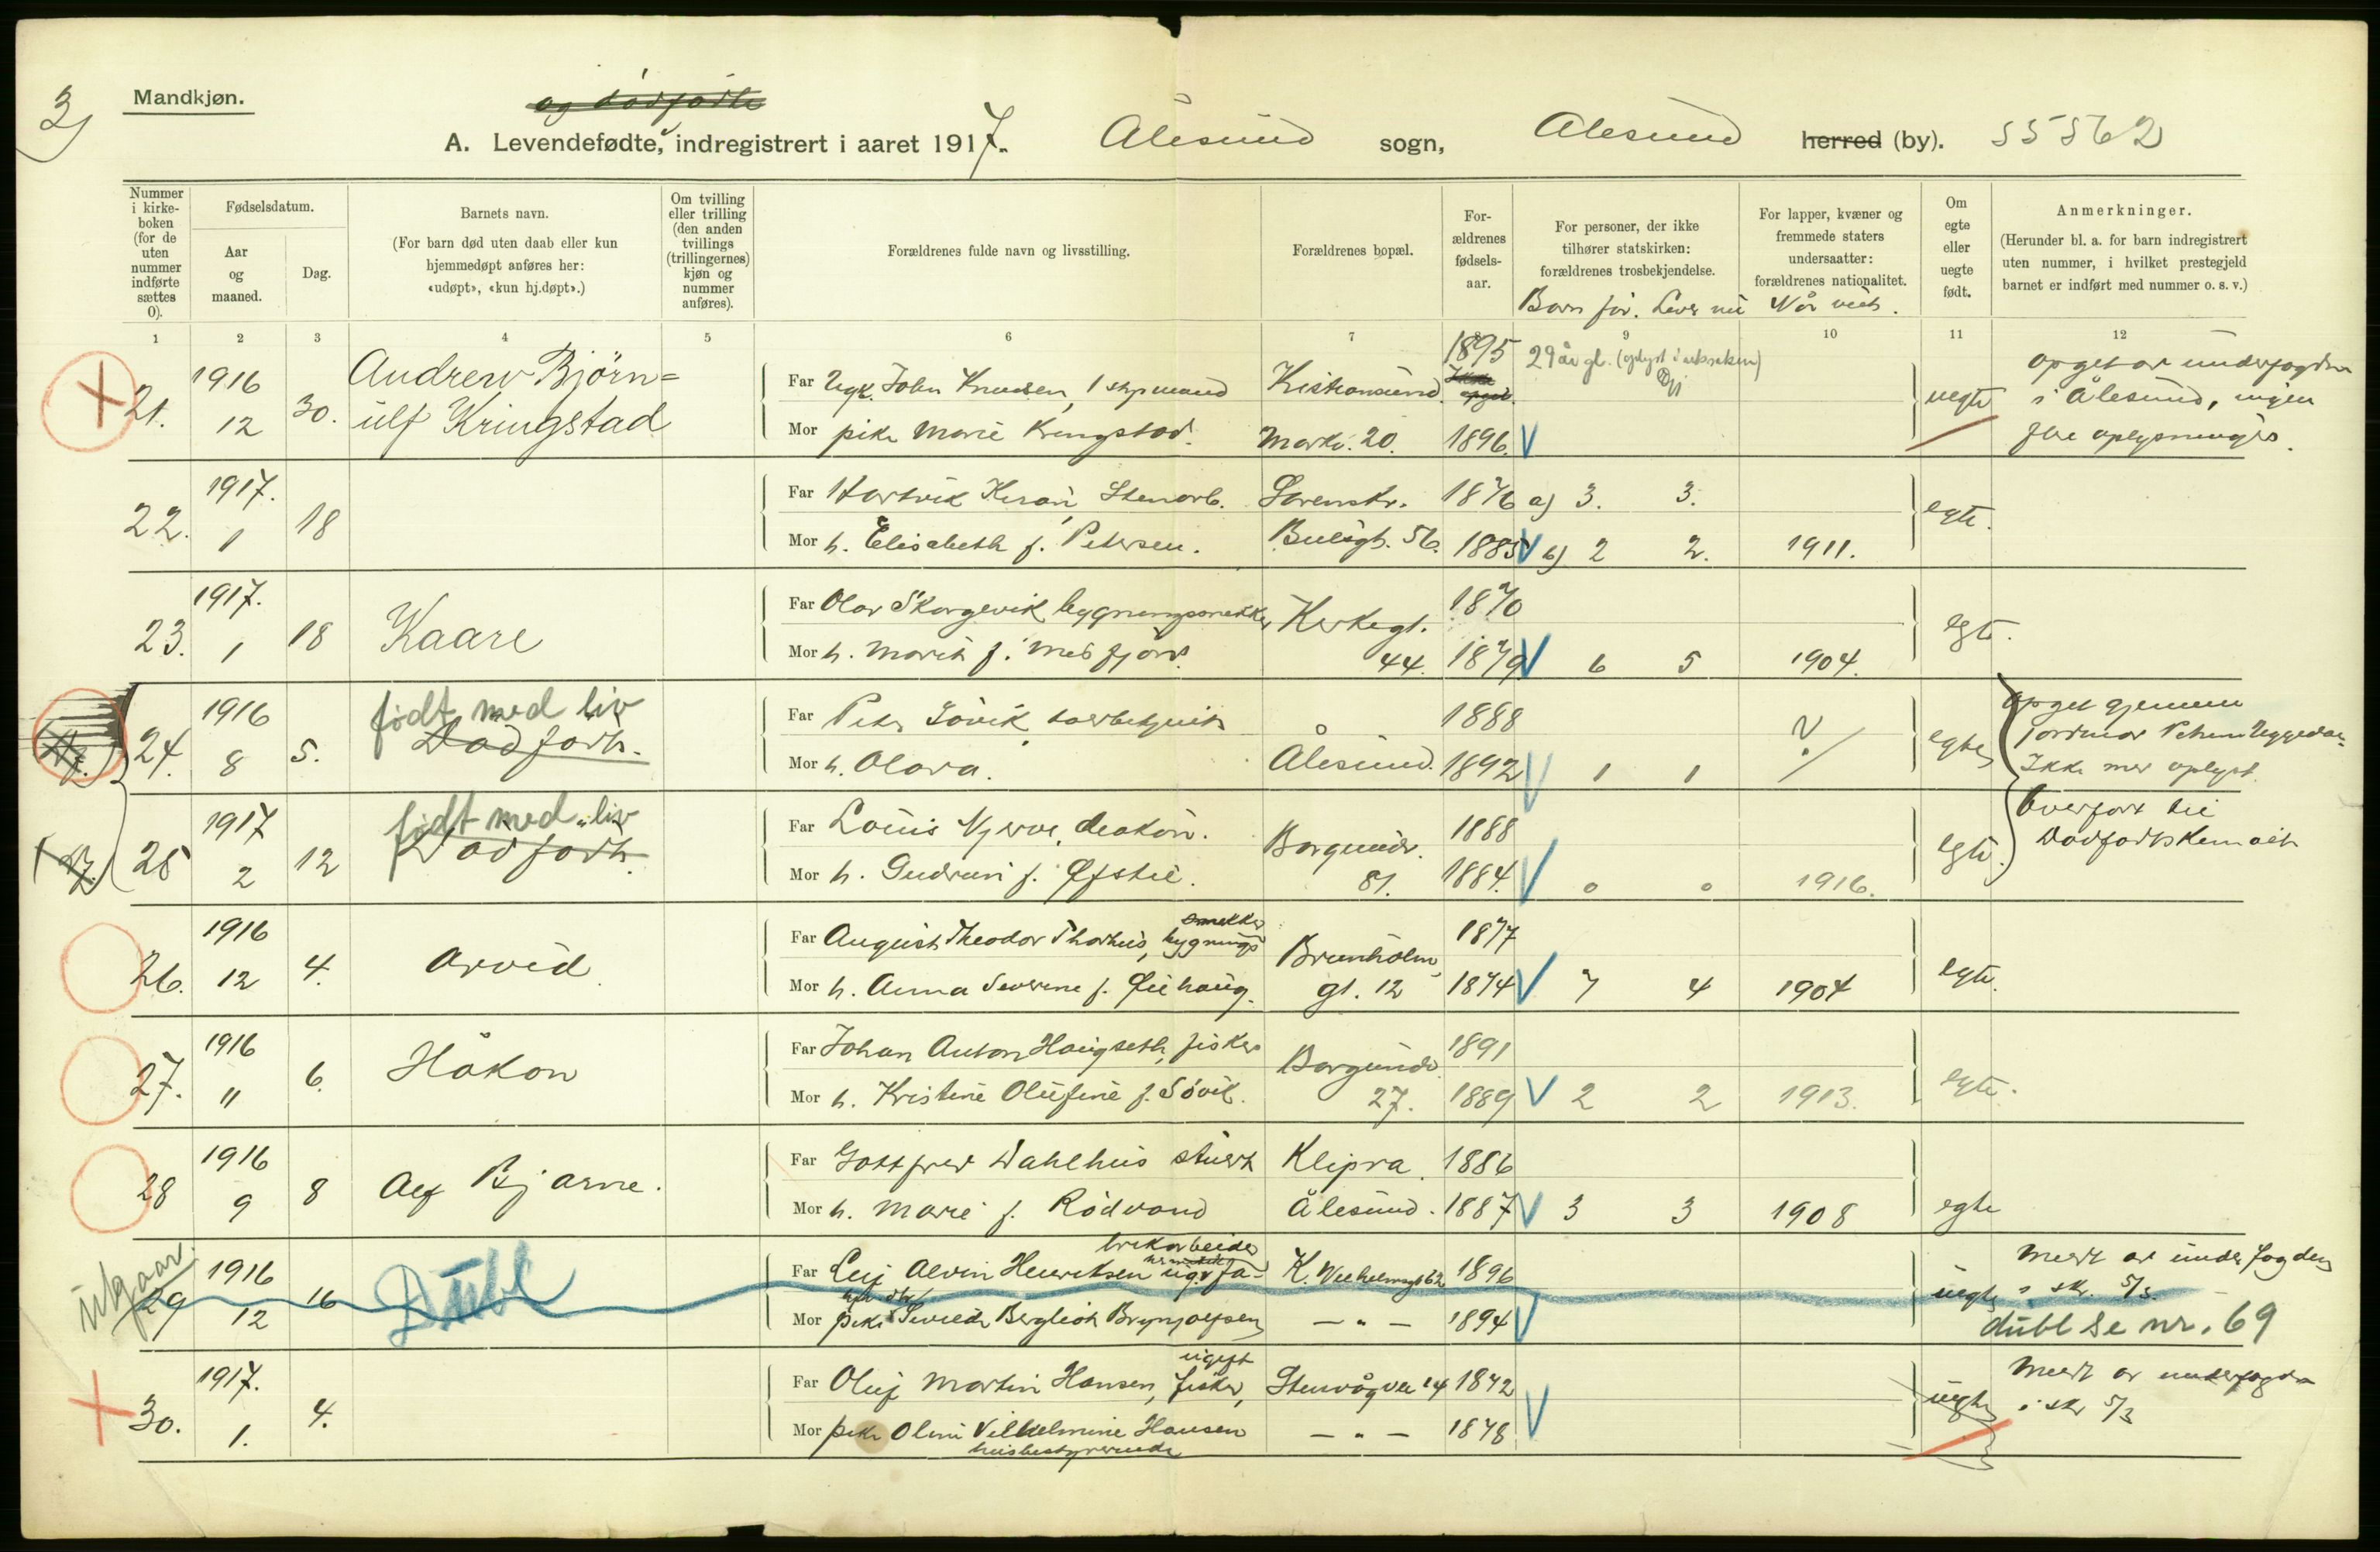 3)
Mandkjøn.
og dødfødte
A. Levendefødte, indregistrert i aaret 1917. Ålesund sogn, Ålesund herred (by). 55562
Nummer i kirke-boken (for de uten nummer indførte sættes 0).
Fødselsdatum.
Aar og maaned.
Dag.
Barnets navn.
(For barn død uten daab eller kun hjemmedøpt anføres her: «udøpt», «kun hj.døpt».)
Om tvilling eller trilling (den anden tvillings (trillingernes) kjøn og nummer anføres).
Forældrenes fulde navn og livsstilling.
Forældrenes bopæl.
For-ældrenes fødsels-aar.
For personer, der ikke tilhører statskirken: forældrenes trosbekjendelse.
For lapper, kvæner og fremmede staters undersaatter: forældrenes nationalitet.
Om egte eller uegte født.
Anmerkninger.
(Herunder bl. a. for barn indregistrert uten nummer, i hvilket prestegjeld barnet er indført med nummer o. s. v.)
Barn før. Lever nu Når viet.
1 2 3 4 5 6 7 9 10 11 12
21. 1916 12 30. Andrew Björn=ulf Kringstad
Far Ugk. John Knudsen, 1 styrmand Kristiansund 1895 29 år gl.
Mor pike Marie Kringstad. Markv. 20. 1896.
uegte opget av underfogden i Ålesund, ingen flere oplysninger.
22. 1917. 1 18
Far Hartvik Kerån, Stenarb. Sorenskr. 1876 a) 3. 3.
Mor h. Elisabeth f. Petersen. Bulsgt. 56. 1885 b) 2 2. 1911.
egte.
23. 1917. 1 18 Kaare
Far Olav Skorgevik bygningssnekker Kirkegt. 1870
Mor h. Marit f. Midfjord. 44. 1879 6 5 1904.
egte.
24. 1916 8 5. født med liv Dødfødt.
Far Peter Søvik 1888
Mor h. Olava. Ålesund. 1892 1 1 ?
egte opget gjennem jordmor
Ikke mer oplyst.
25 1917 2 12 født med liv Dødfødt.
Far Louis Njerve, deakon. Borgundv. 1888
Mor h. Gudrun f. Øfstie. 81. 1884. 0 0 1916.
egte. Overført til Dødfødtskemaet
26. 1916 12 4. Arvid
Far August Theodor Thorhus, bygnings snekker Brunholm 1877
Mor h. Anna Severine f. Øiehaug. gt. 12 1874 7 4 1904
egte.
27. 1916 11 6. Håkon
Far Johan Anton Haugseth, fisker Borgundv. 1891
Mor h. Kristine Olufine f. Søvik. 27. 1889 2 2 1913.
egte.
28 1916 9 8 Alf Bjarne.
Far Gottfred Dahlhus stuert Klipra 1886
Mor h. Marie f. Rødvand Ålesund. 1887 3 3 1908
egte
utgaar.
29 1916 12 16 Dubl
Far Leif Alvin Henriksen ug. fa- K. Wilhelmsgt 62 1896
Mor pike Bergliot Brynjolfsen — " — 1894
uegte Meldt av underfogden i skr. 5/3.
dubl se nr. 69
30. 1917. 1. 4.
Far Oluf Martin Hansen, ugift fisker, Stenvågvei 14 1872
Mor pike Oline Vilhelmine Hansen — " — 1878
husbestyrerinde
uegte Meldt av underfogden i skr 5/3